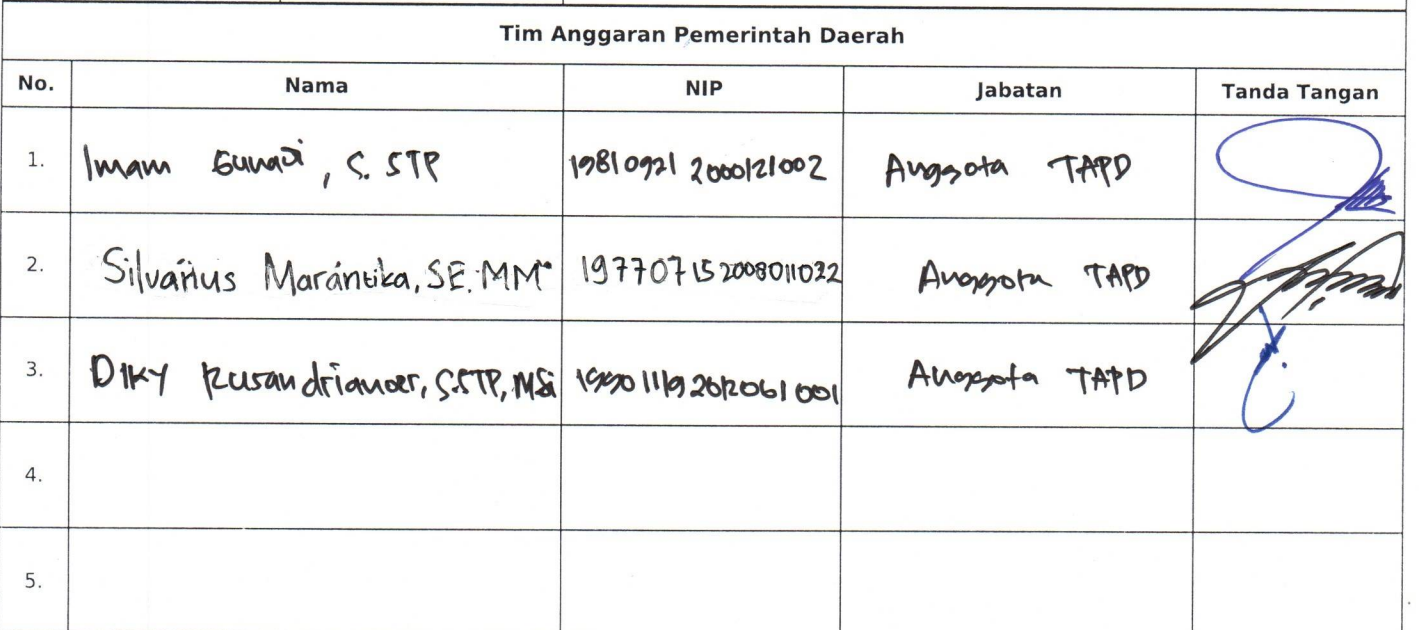 Tim Anggaran Pemerintah Daerah
No. Nama NIP Jabatan Tanda Tangan
1. Imam Gunadi, S.STP 19810921 200012 1002 Anggota TAPD
2. Silvarius Marantika, SE.MM 19770715 2008011022 Anggota TAPD
3. DIKY S.STP, MSi 19901119 201206 1 001 Anggota TAPD
4.
5.